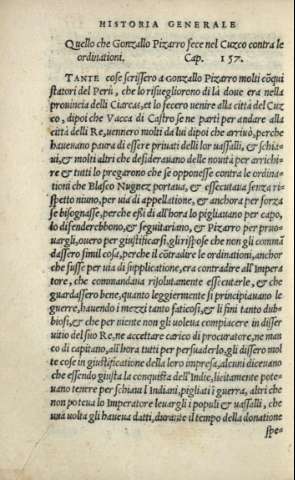 HISTORIA GENERALE
Quello che Gonzallo Pizarro fece nel Cuzco contra le
ordinationi. Cap. 157.
TANTE cose scrissero a Gonzallo Pizarro molti cõqui
statori del Perù, che lo risuegliorono di là doue era nella
prouincia delli Ciarcas, et lo fecero uenire alla città del Cuz
co, dipoi che Vacca di Castro se ne partì per andare alla
città delli Re, uennero molti da lui dipoi che arriuò, perche
haueuano paura di essere priuati delli lor uassalli, & schia-
ui, & molti altri che desiderauano delle nouità per arrichi-
re & tutti lo pregarono che se opponesse contra le ordina-
tioni che Blasco Nugnez portaua, & essecutaua senza ri-
spetto niuno, per uia di appellatione, & anchora per forza
se bisognasse, perche essi di all'hora lo pigliauano per capo,
lo difenderebbono, & seguitariano, & Pizarro per pruo-
uargli, ouero per giustificarsi, gli rispose che non gli comman
dassero simil cosa, perche il cõtradire le ordinationi, anchor
che fusse per uia di supplicatione, era contradire all'Impera
tore, che commandaua risolutamente essecutarle, & che
guardassero bene, quanto leggiermente si principiauano le
guerre, hauendo i mezzi tanto faticosi, & li fini tanto dub-
biosi, & che per niente non gli uoleua compiacere in disser
uitio del suo Re, ne accettare carico di procuratore, ne man
co di capitano, all'hora tutti per persuaderlo, gli dissero mol
te cose in giustificatione della loro impresa, alcuni diceuano
che essendo giusta la conquista dell'Indie, licitamente pote-
uano tenere per schiaui l Indiani, pigliati ì guerra, altri che
non poteua lo Imperatore leuargli i populi & uassalli, che
una uolta gli haueua datti, durante il tempo della donatione
spe-